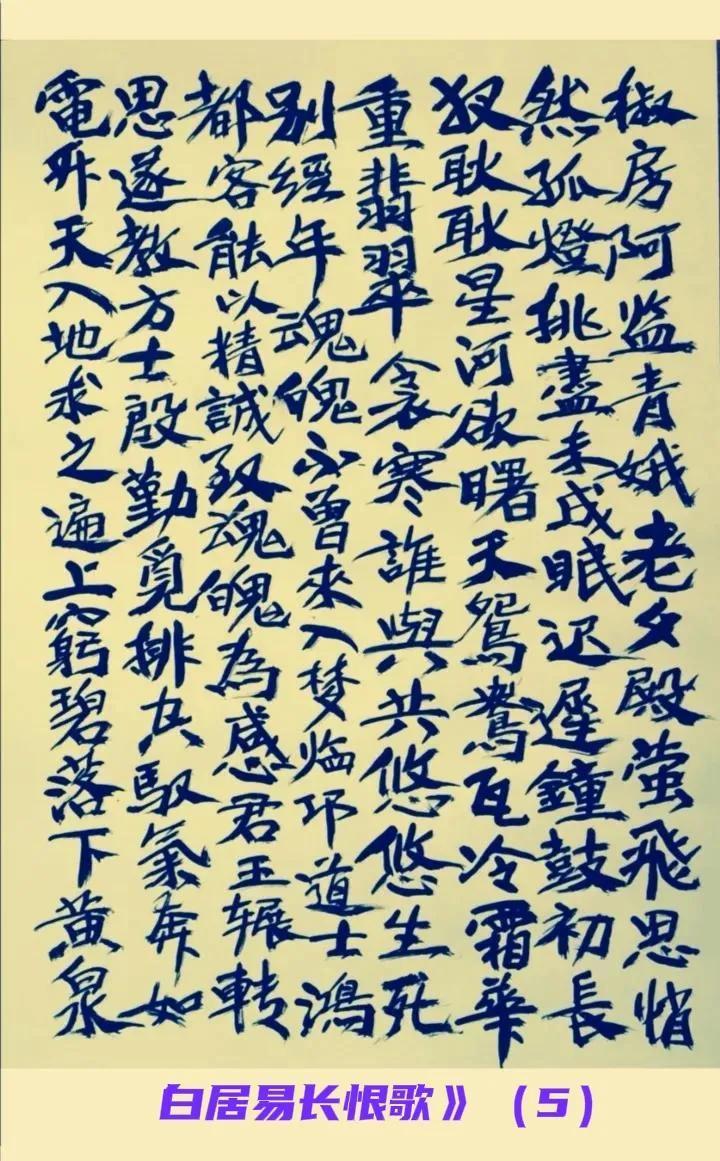 椒房阿监青娥老夕殿萤飛思悄
然孤燈挑盡未成眠迟遲鐘鼓初長
耿耿星河欲曙天鴛鴦瓦冷霜華
重翡翠衾寒誰與共悠悠生死
别經年魂魄不曾來入梦临邛道士鴻
都客能以精誠致魂魄為感君王辗転
思遂教方士殷勤覓排空驭氣奔如
電升天入地求之遍上窮碧落下黄泉
白居易长恨歌》（5）